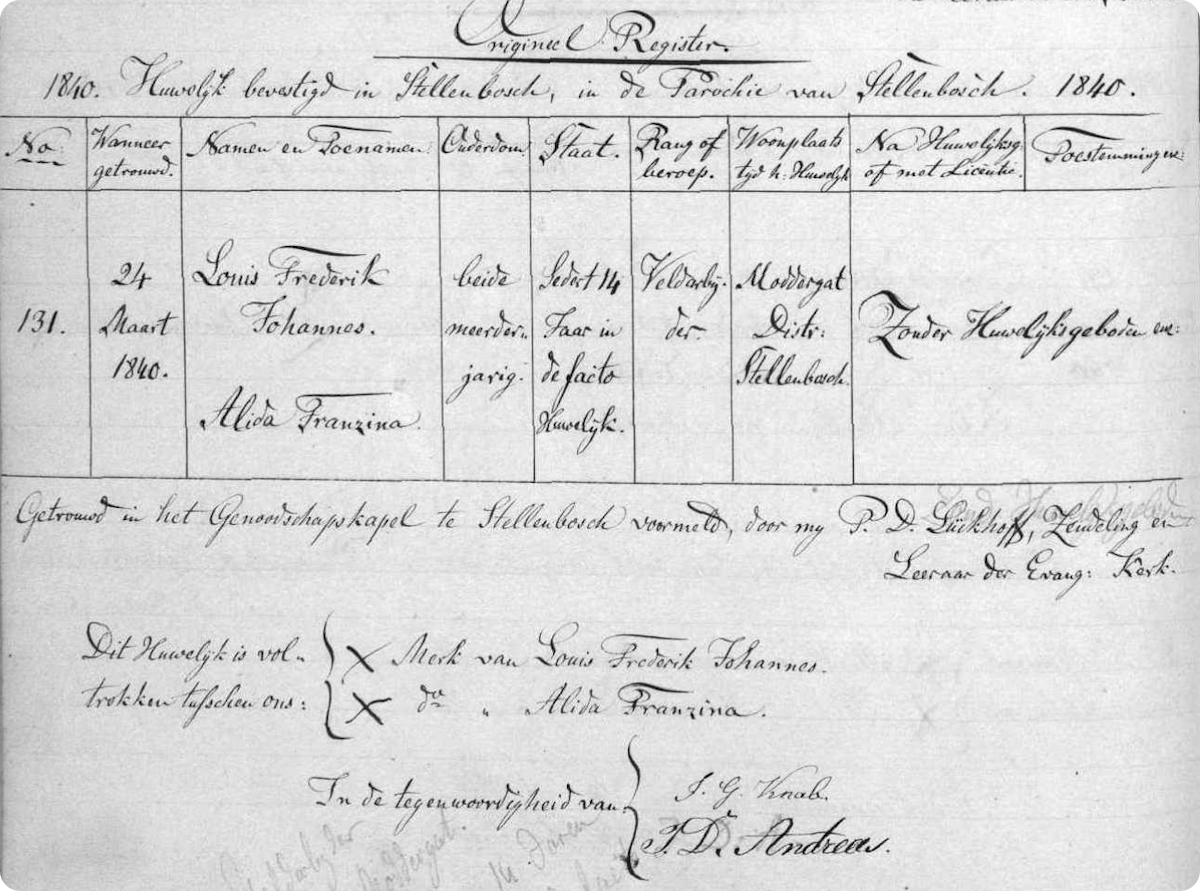 Origineel Register.
1840. Huwelijk bevestigd in Stellenbosch, in de Parochie van Stellenbosch. 1840.
No. Wanneer getrouwd. Namen en Toenamen. Ouderdom. Staat. Rang of beroep. Woonplaats tijd h: Huwelijk Na Huwelijksg. of met Licentie. Toestemming enz:
131. 24 Maart 1840. Louis Frederik Johannes. Alida Franzina. beide meerderjarig. Sedert 14 Jaar in de facto Huwelijk. Veldarbijder. Moddergat Distr: Stellenbosch. Zonder Huwelijksgeboden enz:
Getrouwd in het Genoodschapskapel te Stellenbosch voormeld, door my P. D. Lückhoff, Zendeling en
Leeraar der Evang: Kerk.
Dit Huwelijk is vol- X Merk van Louis Frederik Johannes.
trokken tusschen ons: X do " Alida Franzina.
In de tegenwoordigheid van J. G. Knab.
P. D. Andreas.